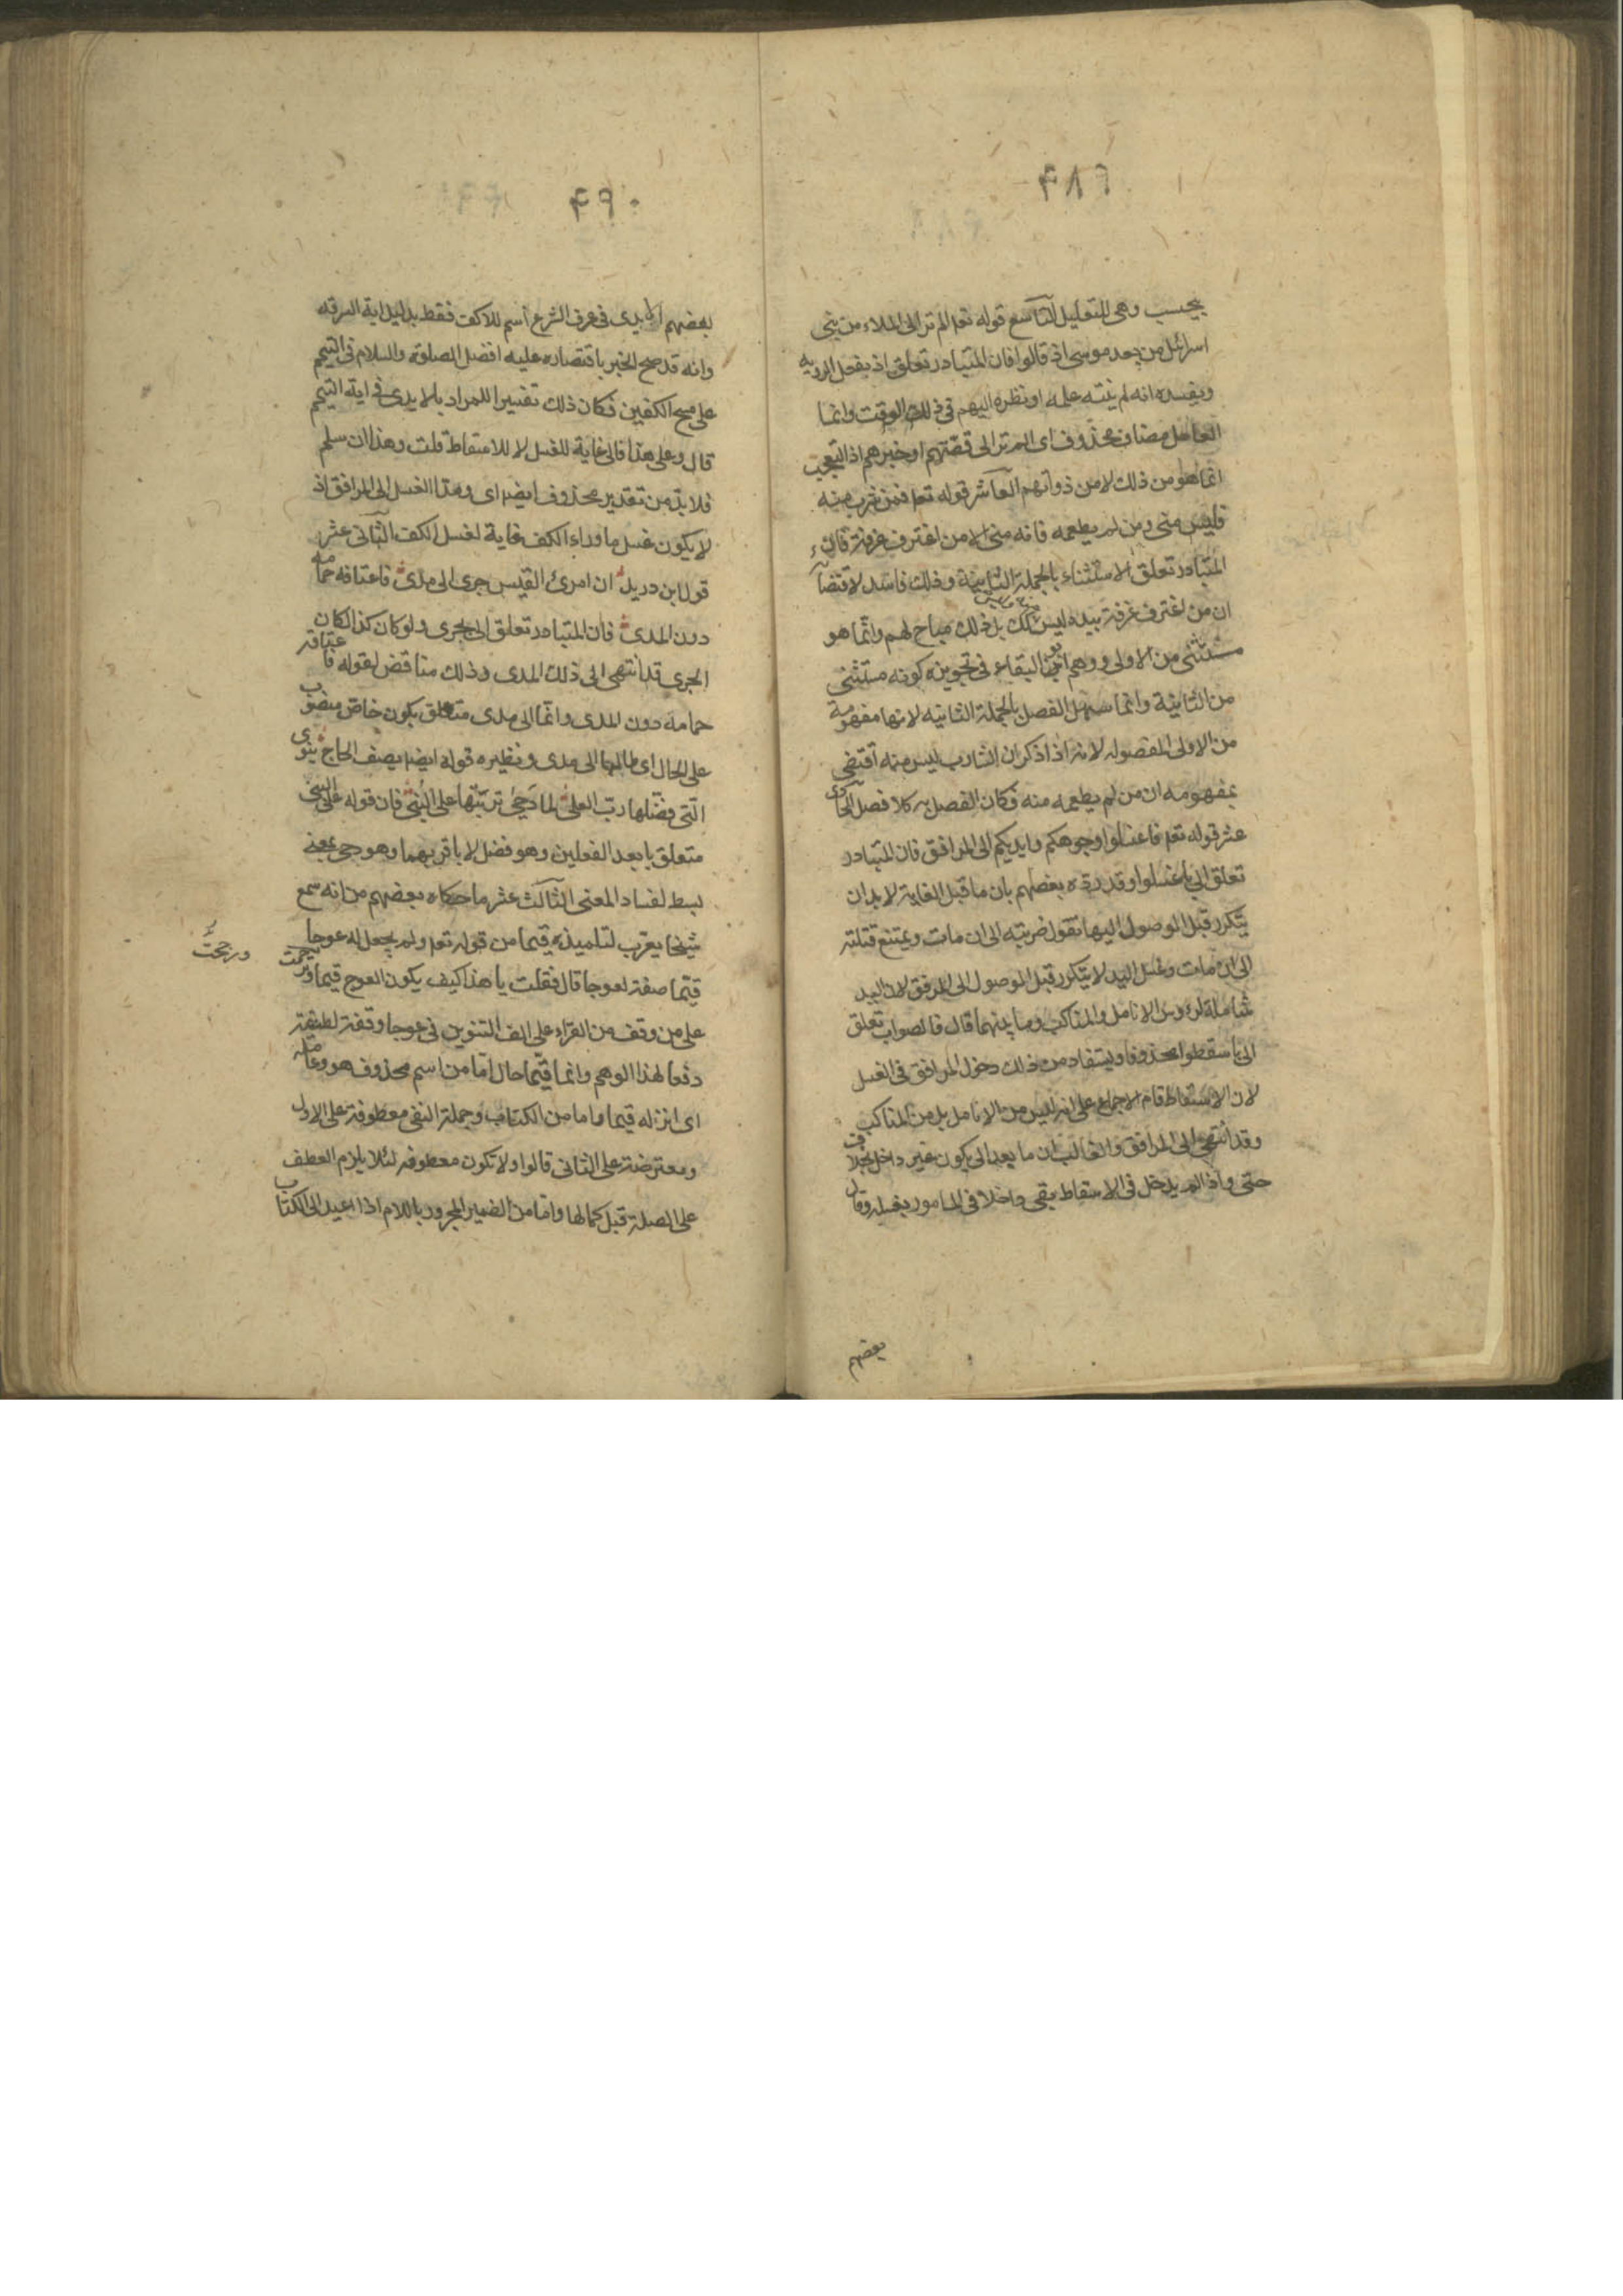 ٤٨٩
بيحسب وهى للتعليل التاسع قوله تعم الم تر الى الملاء من بنى
اسرائل من بعد موسى اذ قالوا فان المتبادر تعلق اذ بفعل الرويه
ويفسده انه لم ينته علمه او نظره اليهم فى ذلك الوقت وانما
العامل مضاف محذوف اى الم تر الى قصتهم او خبرهم اذ التعجب
انما هو من ذلك لا من ذواتهم العاشر قوله تعم فمن شرب منه
فليس منى ومن لم يطعمه فانه منى الا من اغترف غرفة فان
المتبادر تعلق الاستثناء بالجملة الثانية وذلك فاسد لاقتضآء
ان من اغترف غرفة بيده ليس كك بل ذلك مباح لهم وانما هو
مستثنى من الاولى ووهم ابو البقاء فى تجويزه كونه مستثنى
من الثانية وانما سهل الفصل بالجملة الثانيه لانها مفهومة
من الاولى المفصوله لانه اذا ذكر ان الشارب ليس منه اقتضى
بمفهومه ان من لم يطعمه منه فكان الفصل به كلا فصل الحادى
عشر قوله تعم فاغسلوا وجوهكم وايديكم الى المرافق فان المتبادر
تعلق الى باغسلوا وقد رده بعضهم بان ما قبل الغاية لا بد ان
يتكرر قبل الوصول اليها تقول ضربته الى ان مات ويمتنع قتلته
الى ان مات وغسل اليد لا يتكرر قبل الوصول الى المرفق لان اليد
شاملة لرؤوس الانامل والمناكب وما بينهما قال فالصواب تعلق
الى باسقطوا محذوفا ويستفاد من ذلك دخول المرافق فى الغسل
لان الاسقاط قام الاجماع على انه ليس من الانامل بل من المناكب
وقد انتهى الى المرافق والغالب ان ما بعد الى يكون غير داخل بخلاف
حتى واذا لم يدخل فى الاسقاط بقى داخلا فى المامور بغسله وقال
بعضهم
٤٩٠
بعضهم الايدى فى عرف الشرع اسم للاكف فقط بدليل اية السرقه
وانه قد صح الخبر باقتصاره عليه افضل الصلوة والسلام فى التيمم
على مسح الكفين فكان ذلك تفسيرا للمراد بالايدى فى اية التيمم
قال وعلى هذا فالى غاية للغسل لا للاسقاط قلت وهذا ان سلم
فلا بد من تقدير محذوف ايضا اى ومدا الغسل الى المرافق اذ
لا يكون غسل ما وراء الكف غاية لغسل الكف الثانى عشر
قول ابن دريد ان امرئ القيس جرى الى مدى فاعتاقه حمامه
دون المدى فان المتبادر تعلق الى بجرى ولو كان كذا لكان
الجرى قد انتهى الى ذلك المدى وذلك مناقض لقوله فاعتاقه
حمامه دون المدى وانما الى مدى متعلق بكون خاص منصوب
على الحال اى طالبا الى مدى ونظيره قوله ايضا يصف الحاج ينوى
التى فضلها رب العلى لما دحى تربتها على البنى فان قوله على البنى
متعلق بابعد الفعلين وهو فضل لا باقربهما وهو دحى بمعنى
بسط لفساد المعنى الثالث عشر ما حكاه بعضهم من انه سمع
شيخا يعرب لتلميذه قيما من قوله تعم ولم يجعل له عوجا
قيما صفة لعوجا قال فقلت يا هذا كيف يكون العوج قيما وترحمت
ورحمت
على من وقف من القراء على الف التنوين فى عوجا وقفة لطيفة
دفعا لهذا الوهم وانما قيما حال اما من اسم محذوف هو وعامله
اى انزله قيما واما من الكتاب وجملة النفى معطوفة على الاول
ومعترضة على الثانى قالوا ولا تكون معطوفه لئلا يلزم العطف
على الصلة قبل كمالها واما من الضمير المجرور باللام اذا اعيد الى الكتاب